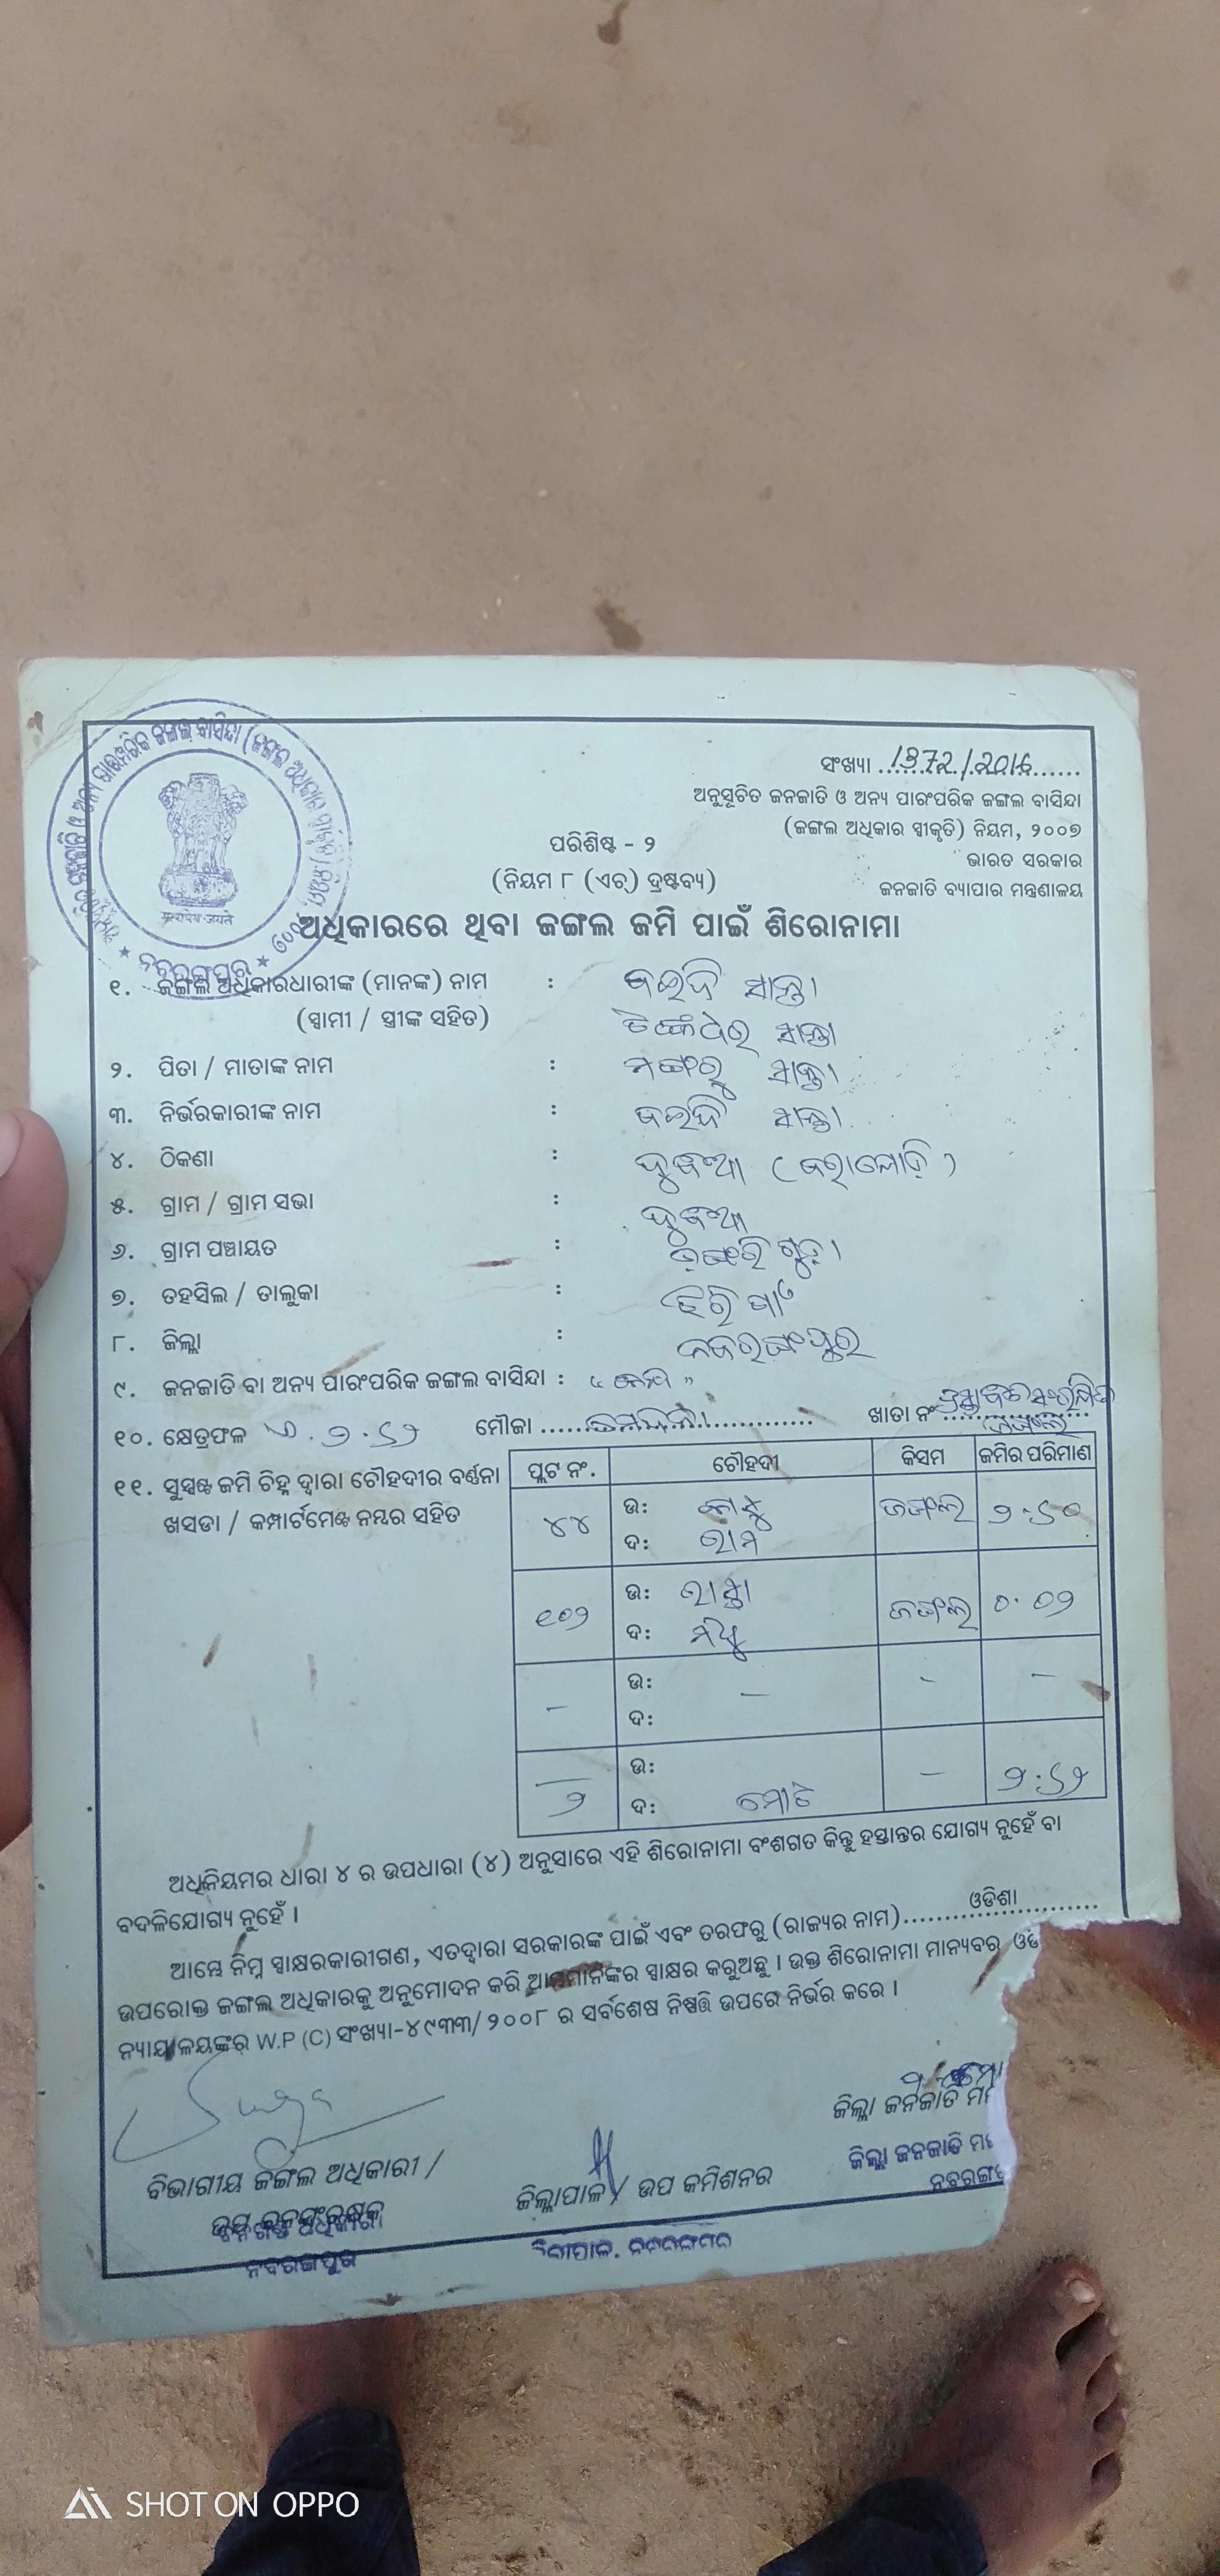 ସଂଖ୍ୟା 1372/2016
ଅନୁସୂଚିତ ଜନଜାତି ଓ ଅନ୍ୟ ପାରଂପରିକ ଜଙ୍ଗଲ ବାସିନ୍ଦା
(ଜଙ୍ଗଲ ଅଧିକାର ସ୍ୱୀକୃତି) ନିୟମ, ୨୦୦୭
ଭାରତ ସରକାର
ଜନଜାତି ବ୍ୟାପାର ମନ୍ତ୍ରଣାଳୟ
ପରିଶିଷ୍ଟ - ୨
(ନିୟମ ୮ (ଏଚ୍) ଦ୍ରଷ୍ଟବ୍ୟ)
सत्यमेव जयते
ନବରଙ୍ଗପୁର
ଅଧିକାରରେ ଥିବା ଜଙ୍ଗଲ ଜମି ପାଇଁ ଶିରୋନାମା
୧. ଜଙ୍ଗଲ ଅଧିକାରଧାରୀଙ୍କ (ମାନଙ୍କ) ନାମ : ଜଇଦି ସାନ୍ତା
(ସ୍ୱାମୀ / ସ୍ତ୍ରୀଙ୍କ ସହିତ) ସାନ୍ତା
୨. ପିତା / ମାତାଙ୍କ ନାମ : ମଙ୍ଗରୁ ସାନ୍ତା
୩. ନିର୍ଭରକାରୀଙ୍କ ନାମ : ଜଇଦି ସାନ୍ତା
୪. ଠିକଣା :
୫. ଗ୍ରାମ / ଗ୍ରାମ ସଭା :
୬. ଗ୍ରାମ ପଞ୍ଚାୟତ : ଡଙ୍ଗରିଗୁଡ଼ା
୭. ତହସିଲ / ତାଲୁକା : ଝରିଗାଁ
୮. ଜିଲ୍ଲା : ନବରଙ୍ଗପୁର
୯. ଜନଜାତି ବା ଅନ୍ୟ ପାରଂପରିକ ଜଙ୍ଗଲ ବାସିନ୍ଦା :
୧୦. କ୍ଷେତ୍ରଫଳ ଏ. ୨.୬୨ ମୌଜା ଖାତା ନଂ ପ୍ରସ୍ତାବିତ ସଂରକ୍ଷିତ
ଜଙ୍ଗଲ
୧୧. ସୁସ୍ପଷ୍ଟ ଜମି ଚିହ୍ନ ଦ୍ୱାରା ଚୌହଦୀର ବର୍ଣ୍ଣନା
ଖସଡା / କମ୍ପାର୍ଟମେଣ୍ଟ ନମ୍ବର ସହିତ
ପ୍ଲଟ ନଂ. ଚୌହଦୀ କିସମ ଜମିର ପରିମାଣ
୪୪ ଉ: ଜଙ୍ଗଲ ୨.୬୦
ଦ: ରାମ
୧୦୨ ଉ: ରାସ୍ତା ଜଙ୍ଗଲ ୦.୦୨
ଦ: ମଧୁ
– ଉ: – – –
ଦ:
୨ ଉ: – ୨.୬୨
ଦ: ମୋଟ
ଅଧିନିୟମର ଧାରା ୪ ର ଉପଧାରା (୪) ଅନୁସାରେ ଏହି ଶିରୋନାମା ବଂଶଗତ କିନ୍ତୁ ହସ୍ତାନ୍ତର ଯୋଗ୍ୟ ନୁହେଁ ବା
ବଦଳିଯୋଗ୍ୟ ନୁହେଁ ।
ଆମ୍ଭେ ନିମ୍ନ ସ୍ୱାକ୍ଷରକାରୀଗଣ, ଏତଦ୍ୱାରା ସରକାରଙ୍କ ପାଇଁ ଏବଂ ତରଫରୁ (ରାଜ୍ୟର ନାମ) ଓଡିଶା
ଉପରୋକ୍ତ ଜଙ୍ଗଲ ଅଧିକାରକୁ ଅନୁମୋଦନ କରି ଆମମାନଙ୍କର ସ୍ୱାକ୍ଷର କରୁଅଛୁ । ଉକ୍ତ ଶିରୋନାମା ମାନ୍ୟବର
ନ୍ୟାୟାଳୟଙ୍କର W.P (C) ସଂଖ୍ୟା-୪୯୩୩/୨୦୦୮ ର ସର୍ବଶେଷ ନିଷ୍ପତ୍ତି ଉପରେ ନିର୍ଭର କରେ ।
ଜିଲ୍ଲା ଜନଜାତି
ବିଭାଗୀୟ ଜଙ୍ଗଲ ଅଧିକାରୀ / ଜିଲ୍ଲାପାଳ / ଉପ କମିଶନର ଜିଲ୍ଲା ଜନଜାତି
ନବରଙ୍ଗପୁର
SHOT ON OPPO